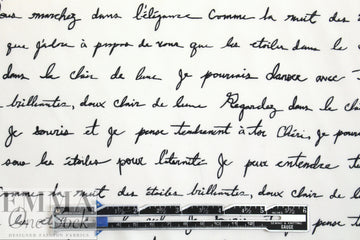 ous marchez dans l'élégance Comme la nuit des
que j'adore à propos de vous que les étoiles dans le
dans le clair de lune Je pourrais danser avec
brillantes, doux clair de lune Regardez dans le cl
Je souris et je pense tendrement à toi Chéri, je pour
sous les étoiles pour l'éternité Je peux entendre
comme la nuit des étoiles brillantes, doux clair de l
EMMA
One Sock
DESIGNER FASHION FABRICS
GAUGE
pense t